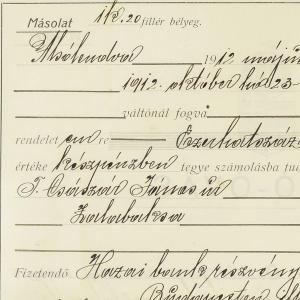 Másolat 1 K. 20 fillér bélyeg.
Alsólendva 1912 május
1912. október hó 23-
váltónál fogva
rendelet em re Ezerhatszáz
értéke készpénzben tegye számolásba tud
T. Császár János úr
Zalabaksa
Fizetendő Hazai bank részvény
Budapesten